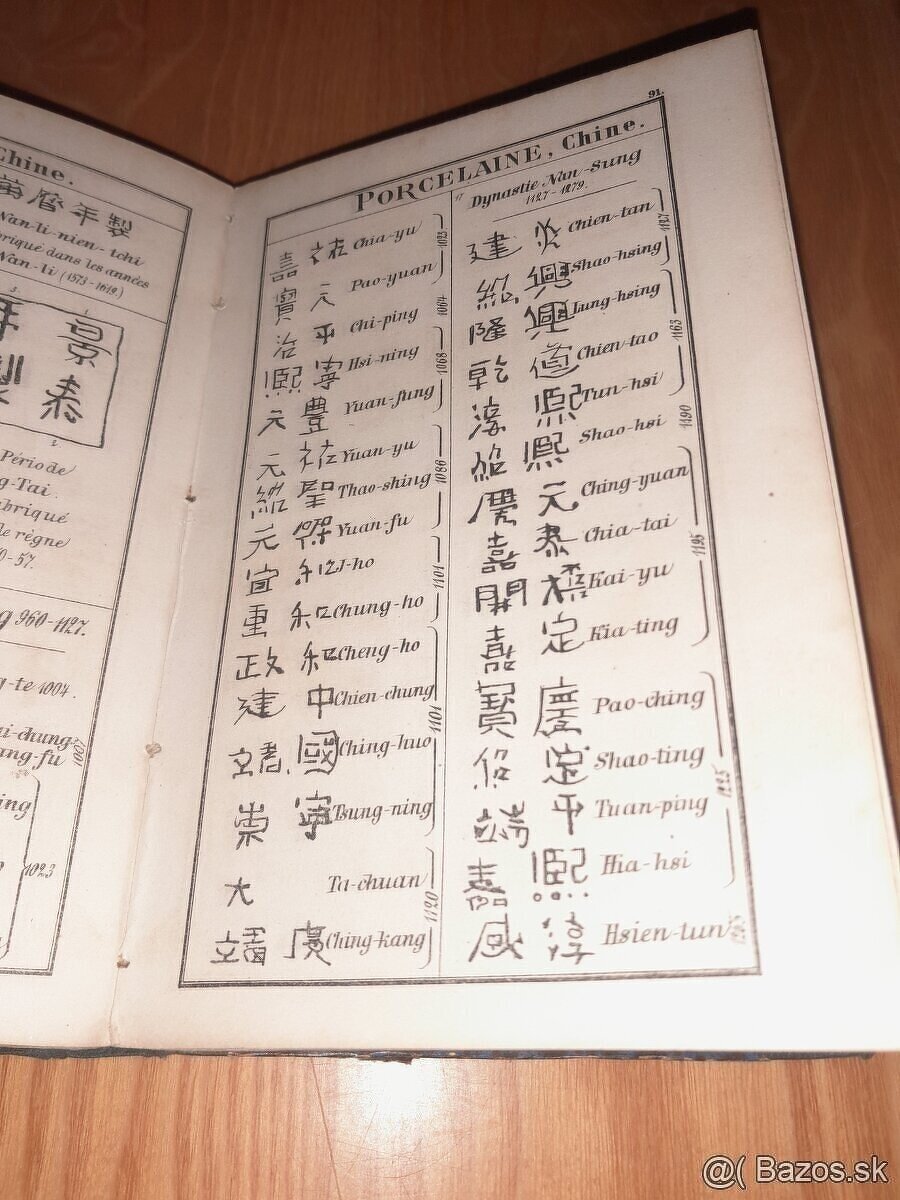 Chine.
萬曆年製
Wan-li-nien-tchi
fabriqué dans les années
Wan-li (1573-1619.)
景
泰
製
Période
g-Tai.
abriqué
de règne
0-57.
g 960-1127.
g-te 1004.
ang-fu
1023
91.
PORCELAINE, Chine.
嘉祐 Chia-yu
寶元 Pao-yuan
治平 Chi-ping 1064
熙寧 Hsi-ning 1068
元豐 Yuan-fung
元祐 Yuan-yu 1086
紹聖 Thao-shing
元 Yuan-fu
宣和 I-ho 1101
重和 Chung-ho
政和 Cheng-ho
建中 Chien-chung 1101
靖國 Ching-huo
崇寧 Tsung-ning
大 Ta-chuan 1120
靖 Ching-kang
Dynastie Nan-Sung
1127-1279.
建炎 Chien-tan 1127
紹興 Shao-hsing
隆興 Lung-hsing 1163
乾道 Chien-tao
淳熙 Tun-hsi
紹熙 Shao-hsi 1190
慶元 Ching-yuan 1195
嘉泰 Chia-tai
開禧 Kai-yu
嘉定 Kia-ting
寶慶 Pao-ching 1225
紹定 Shao-ting
端平 Tuan-ping
嘉熙 Hia-hsi
咸淳 Hsien-tun
@( Bazos.sk